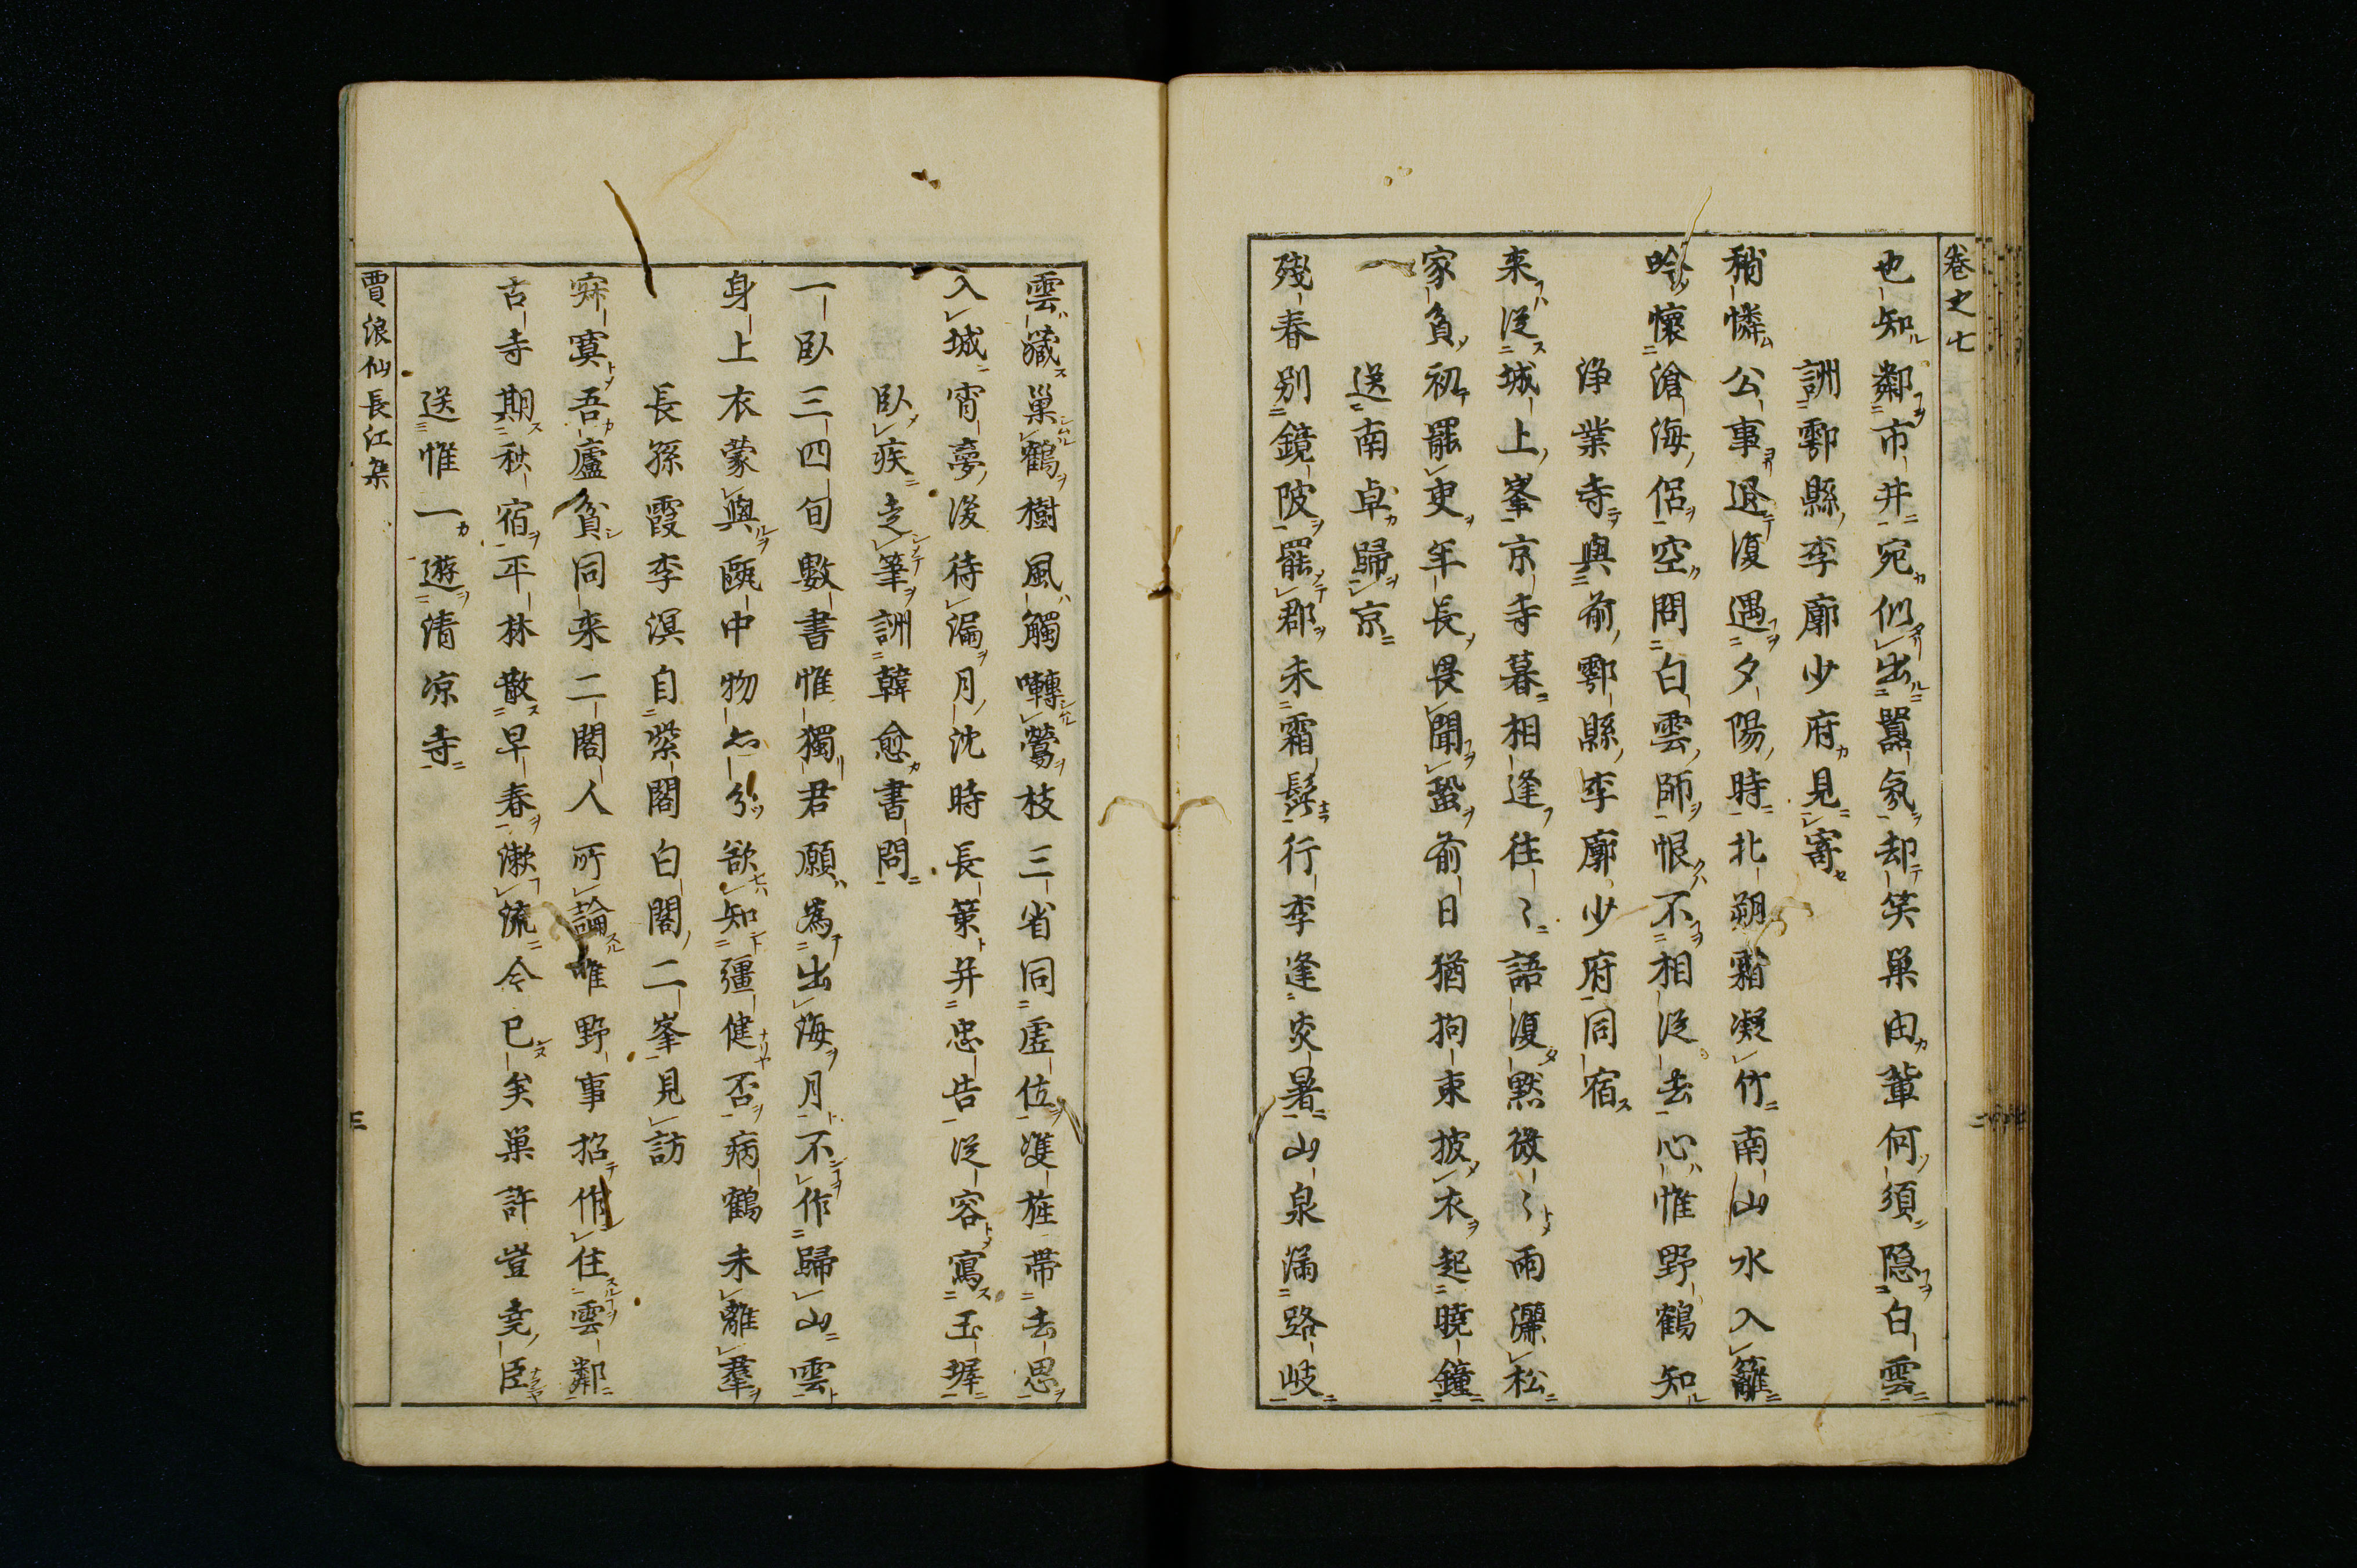 卷之七
也知鄰市井宛似出囂氛却笑巢由輩何須隱白雲
詶鄠縣李廓少府見寄
稍憐公事退復遇夕陽時北朔霜凝竹南山水入籬
吟懷滄海侶空問白雲師恨不相從去心惟野鶴知
淨業寺與前鄠縣李廓少府同宿
來從城上峯京寺暮相逢往〻語復黙微〻雨灑松
家貧初罷吏年長畏聞蛩前日猶拘束披衣起曉鐘
送南卓歸京
殘春別鏡陂罷郡未霜髭行李逢炎暑山泉滿路岐
雲藏巢鶴樹風觸囀鶯枝三省同虛位雙旌帶去思
入城宵夢後待漏月沈時長策并忠告從容寫玉墀
臥疾走筆詶韓愈書問
一臥三四旬數書惟獨君願為出海月不作歸山雲
身上衣蒙與甌中物亦分欲知彊健否病鶴未離羣
長孫霞李溟自紫閣白閣二峯見訪
寂寞吾廬貧同來二閣人所論唯野事招作住雲鄰
古寺期秋宿平林散早春漱流今已矣巢許豈堯臣
送惟一遊清凉寺
賈浪仙長江集
三